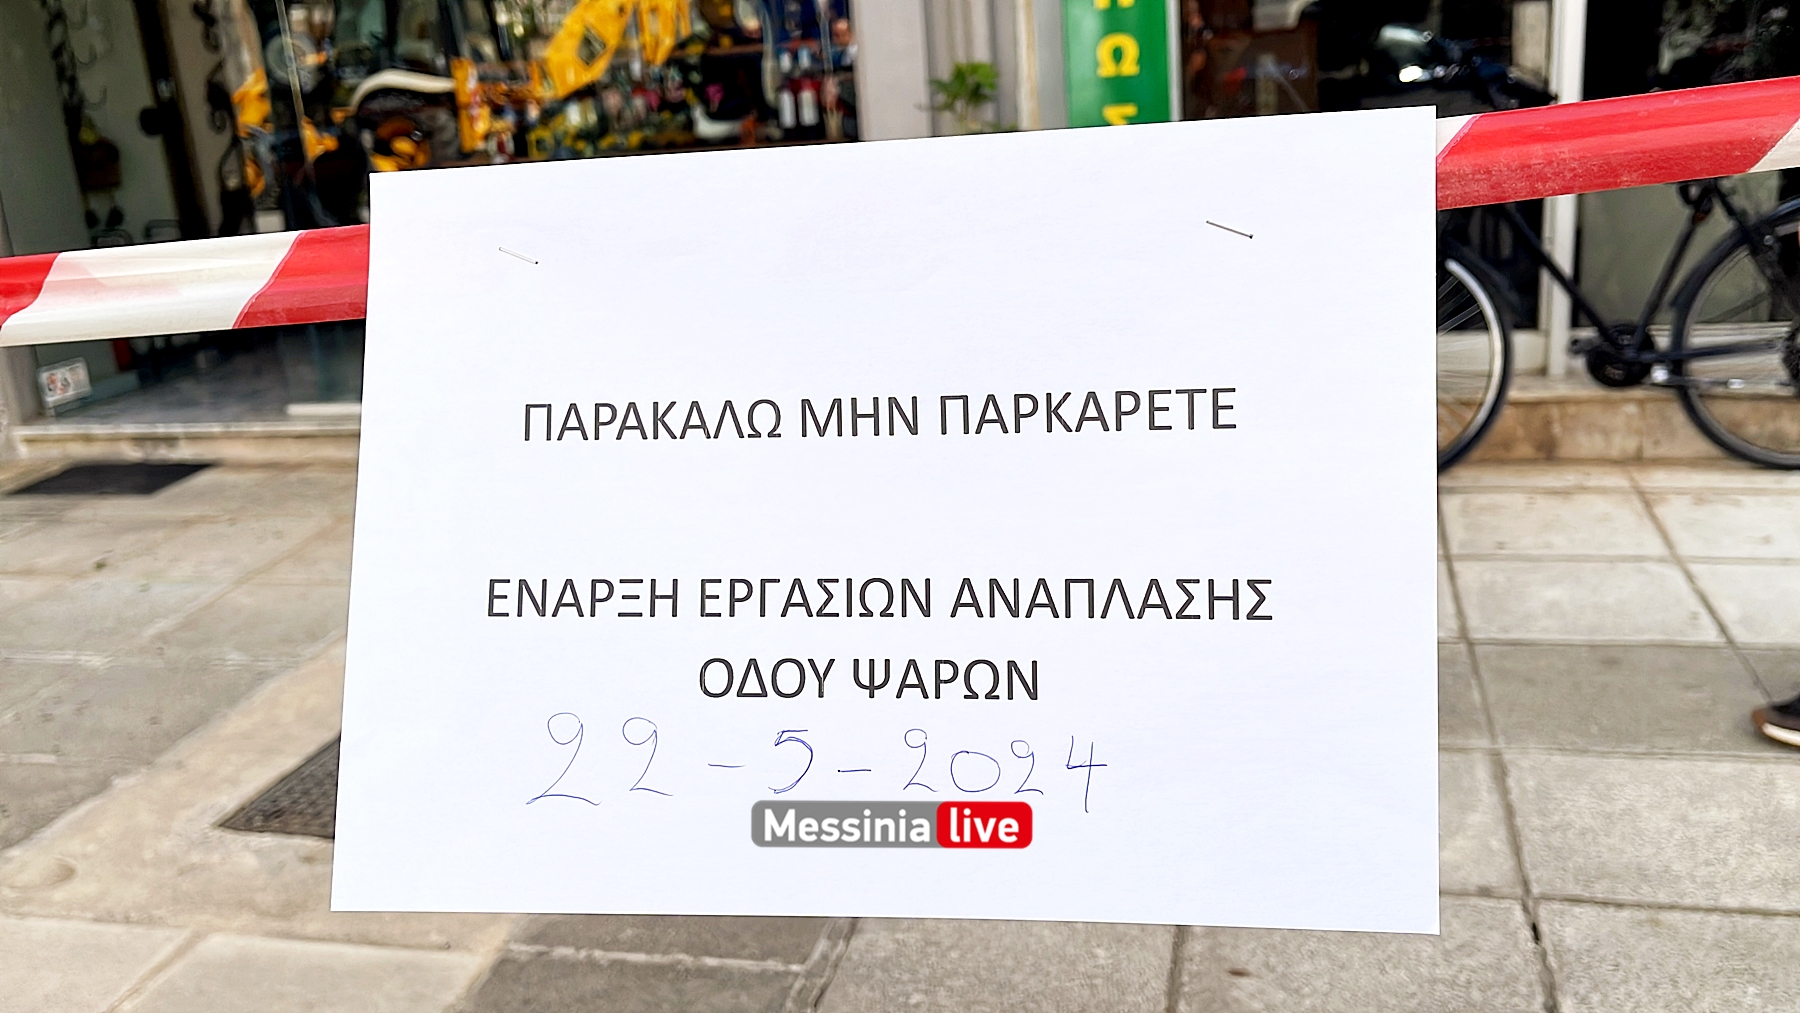 ΠΑΡΑΚΑΛΩ ΜΗΝ ΠΑΡΚΑΡΕΤΕ
ΕΝΑΡΞΗ ΕΡΓΑΣΙΩΝ ΑΝΑΠΛΑΣΗΣ
ΟΔΟΥ ΨΑΡΩΝ
22-5-2024
Messinia live